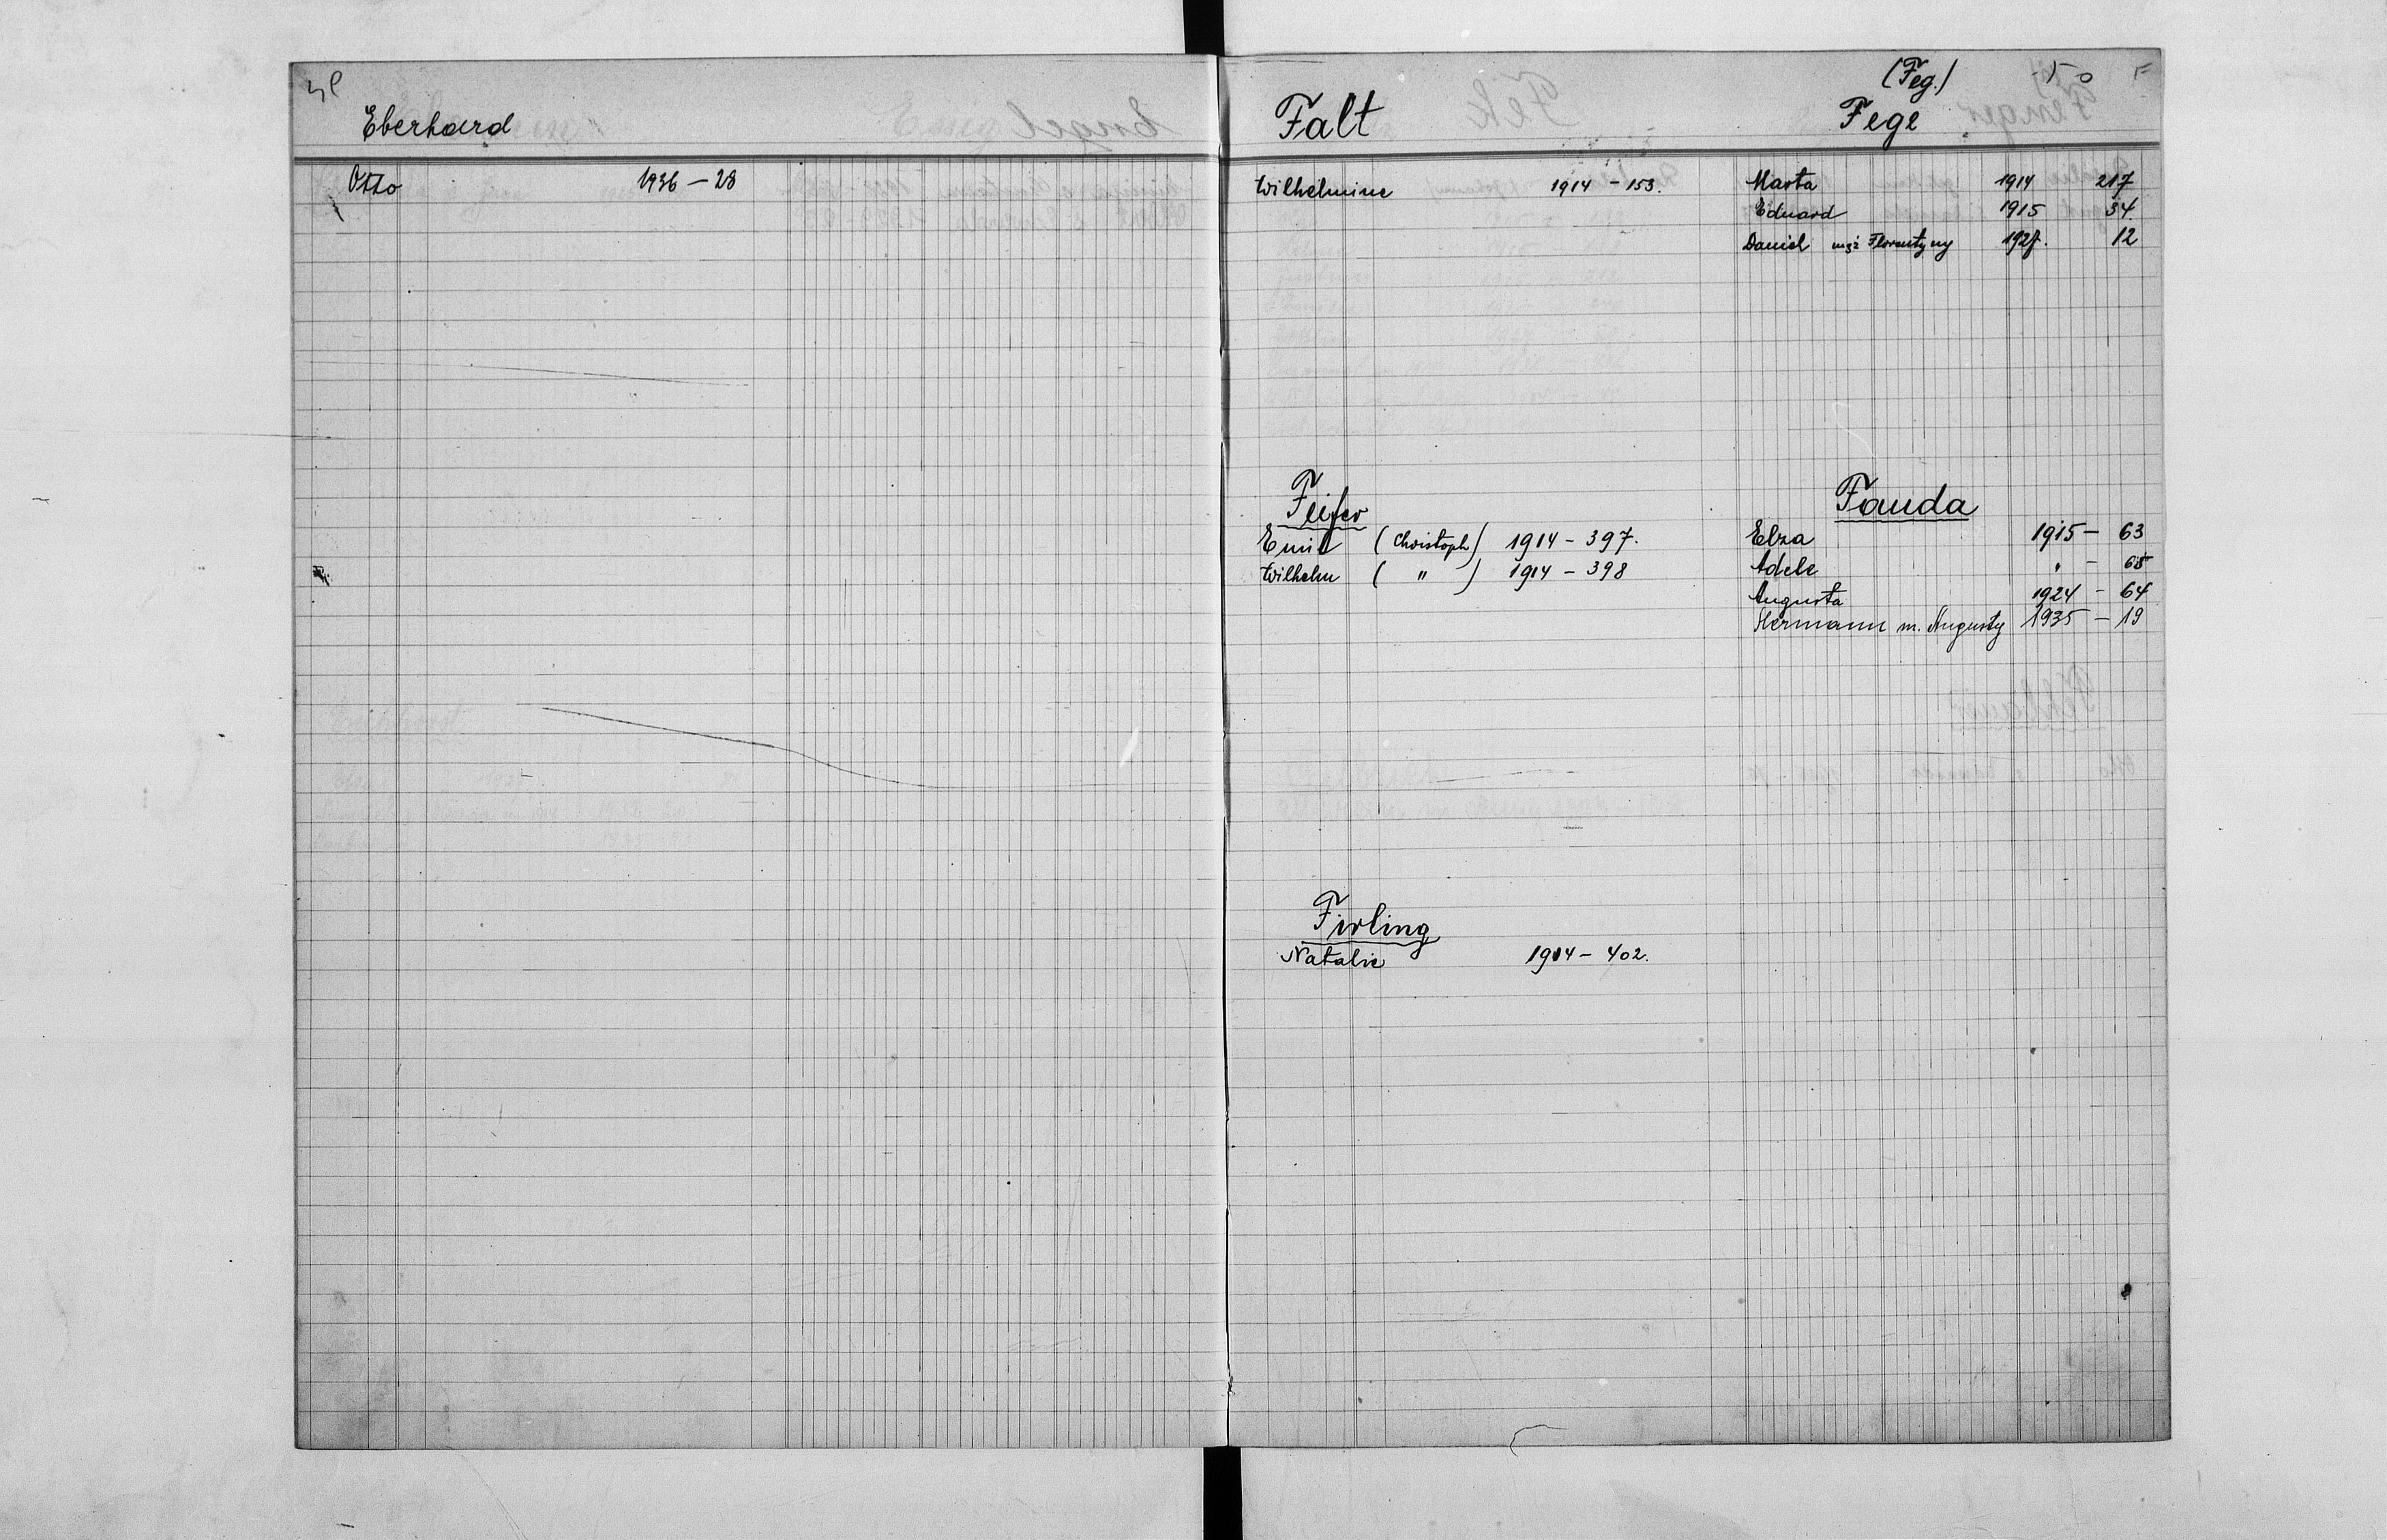 Eberhard
Otto 1936 – 28
Falt
Wilhelmine 1914 – 153.
(Feg.)
Fege
Marta 1914 217
Eduard 1915 34.
Daniel mąż Florentyny 1927. 12
Feifer
Emil (Christoph) 1914 – 397.
Wilhelm ( " ) 1914 – 398
Fauda
Elza 1915 – 63
Adele " – 65
Augusta 1924 – 64
Hermann m. Augusty 1935 – 19
Firling
Natalie 1914 – 402.